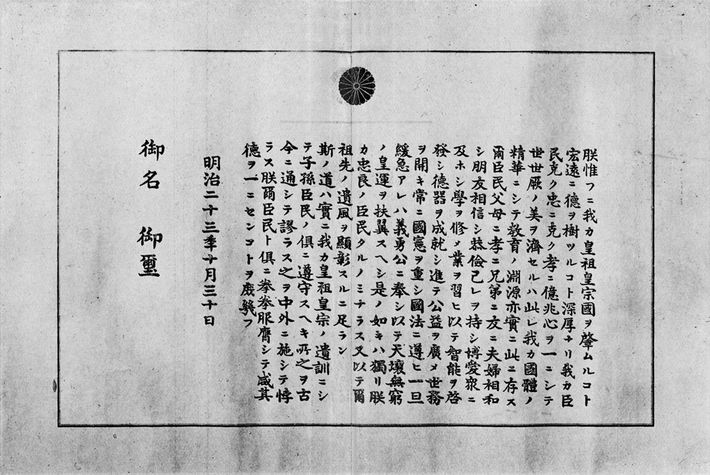 朕惟フニ我カ皇祖皇宗國ヲ肇ムルコト
宏遠ニ德ヲ樹ツルコト深厚ナリ我カ臣
民克ク忠ニ克ク孝ニ億兆心ヲ一ニシテ
世世厥ノ美ヲ濟セルハ此レ我カ國體ノ
精華ニシテ敎育ノ淵源亦實ニ此ニ存ス
爾臣民父母ニ孝ニ兄弟ニ友ニ夫婦相和
シ朋友相信シ恭儉己レヲ持シ博愛衆ニ
及ホシ學ヲ修メ業ヲ習ヒ以テ智能ヲ啓
發シ德器ヲ成就シ進テ公益ヲ廣メ世務
ヲ開キ常ニ國憲ヲ重シ國法ニ遵ヒ一旦
緩急アレハ義勇公ニ奉シ以テ天壤無窮
ノ皇運ヲ扶翼スヘシ是ノ如キハ獨リ朕
カ忠良ノ臣民タルノミナラス又以テ爾
祖先ノ遺風ヲ顯彰スルニ足ラン
斯ノ道ハ實ニ我カ皇祖皇宗ノ遺訓ニシ
テ子孫臣民ノ俱ニ遵守スヘキ所之ヲ古
今ニ通シテ謬ラス之ヲ中外ニ施シテ悖
ラス朕爾臣民ト俱ニ拳拳服膺シテ咸其
德ヲ一ニセンコトヲ庶幾フ
明治二十三年十月三十日
御名 御璽